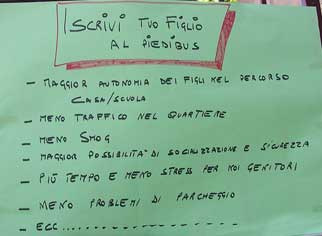 ISCRIVI TUO FIGLIO
AL PIEDIBUS
- MAGGIOR AUTONOMIA DEI FIGLI NEL PERCORSO
CASA/SCUOLA
- MENO TRAFFICO NEL QUARTIERE
- MENO SMOG
- MAGGIOR POSSIBILITA' DI SOCIALIZZAZIONE E SICUREZZA
- PIÙ TEMPO E MENO STRESS PER NOI GENITORI
- MENO PROBLEMI DI PARCHEGGIO
- ECC..................